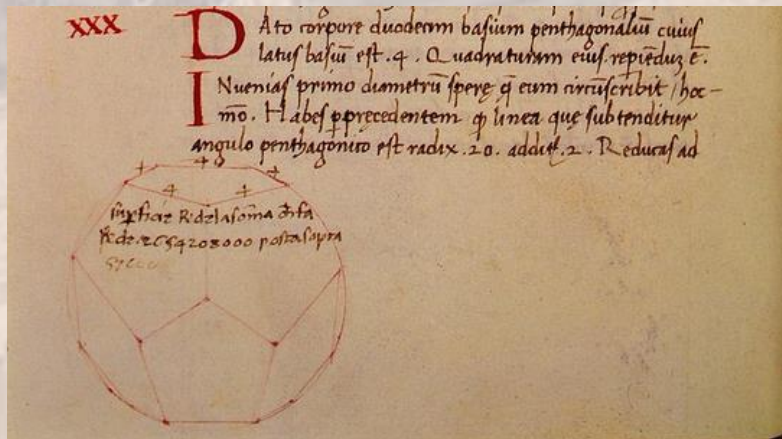 XXX
Dato corpore duodecim basium penthagonaliũ cuius
latus basiũ est .4. Quadraturam eius repiẽduz ẽ.
INuenias primo diametrũ sperę q̃ eum circũscribit / hoc
mõ. Habes p̱ pręcedentem ꝙ linea quę subtenditur
angulo penthagonico est radix .20. addiť .2. Reducas ad
4 4 4
4 4
la soma
2654208000 posta sopra